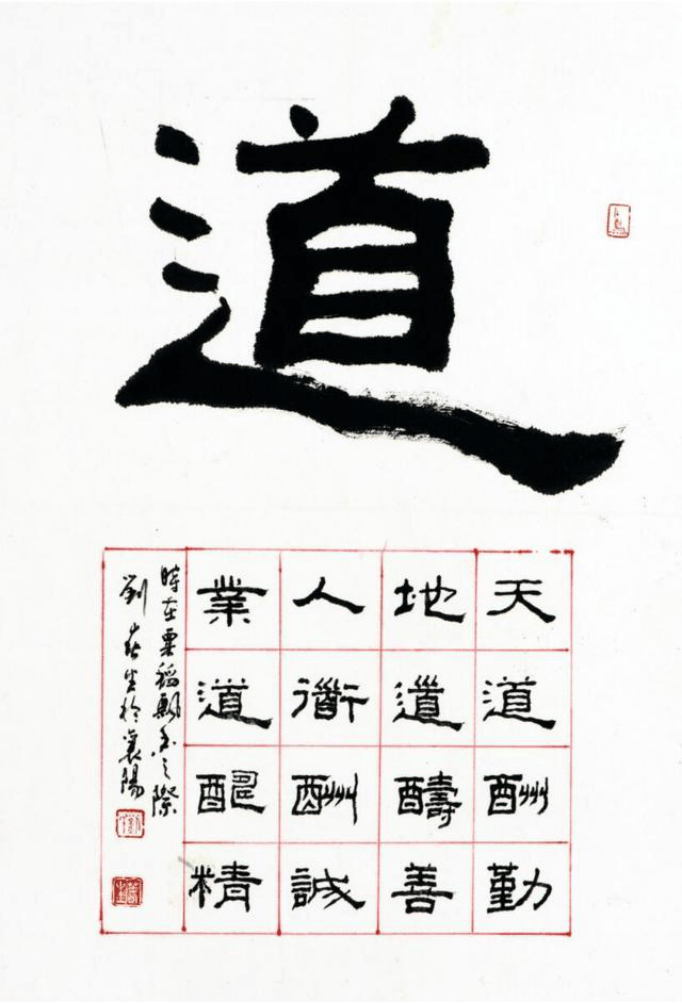 道
天道酬勤
地道醻善
人衜酬誠
業道醌精
時在粟稻飄香之際
劉春生於襄陽